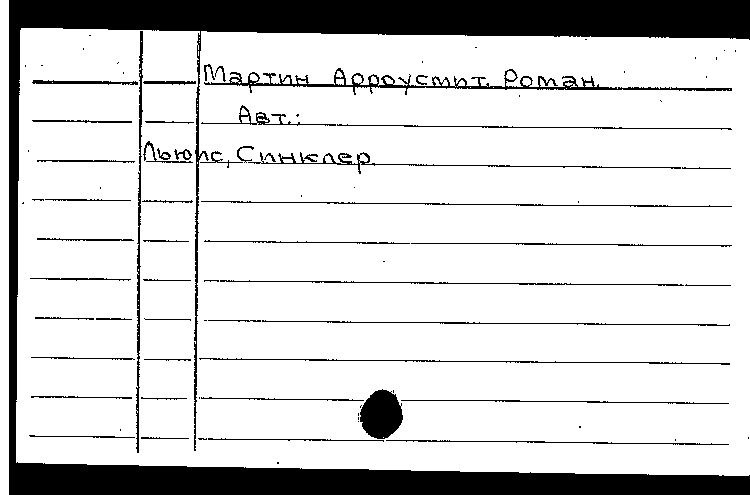 Мартин Арроусмит. Роман.
Авт.:
Льюис, Синклер.